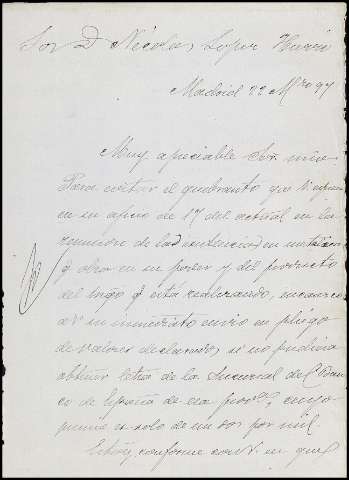 Sor D Nicolas Lopez
Madrid 22 Mzo 97
Muy apreciable Sor mio
Para evitar el quebranto que
en su apcio de 17 del actual en la
remision de las
q obra en su poder y del producto
del trigo q está realizando,
su inmediato envio en pliego
de valores declarados, si no pudiera
obtener letra de la Sucursal de Ban
co de España de esa provca, cuyo
premio es solo de un dos por mil.
Estoy conforme con V. en que